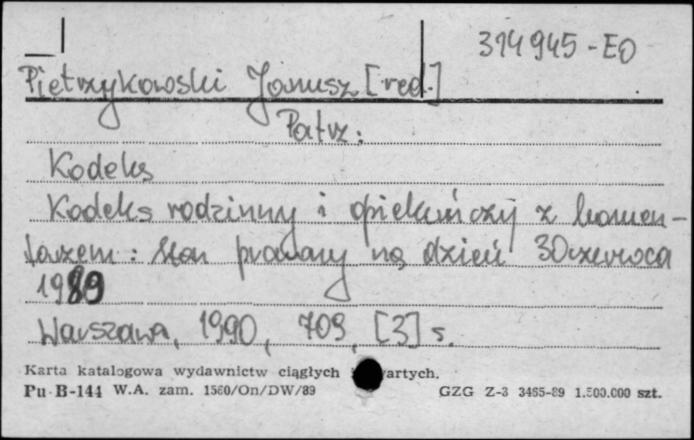 314945-EO
Pietrzykowski Janusz [red.]
Patrz:
Kodeks
Kodeks rodzinny i opiekuńczy z komen-
tarzem: stan prawny na dzień 30 czerwca
1989
Warszawa, 1990, 709, [3] s.
Karta katalogowa wydawnictw ciągłych i zwartych.
Pu-B-144 W.A. zam. 1560/On/DW/89 GZG Z-3 3465-89 1.500.000 szt.